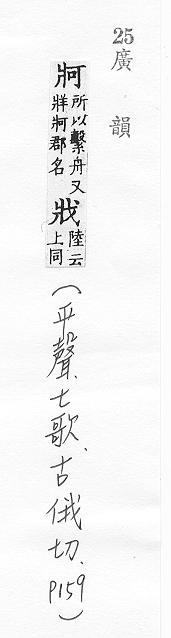 25
廣韻
牁所以繫舟又
牂牁郡名
戕陸云
上同
（平聲、七歌、古俄切、P159）